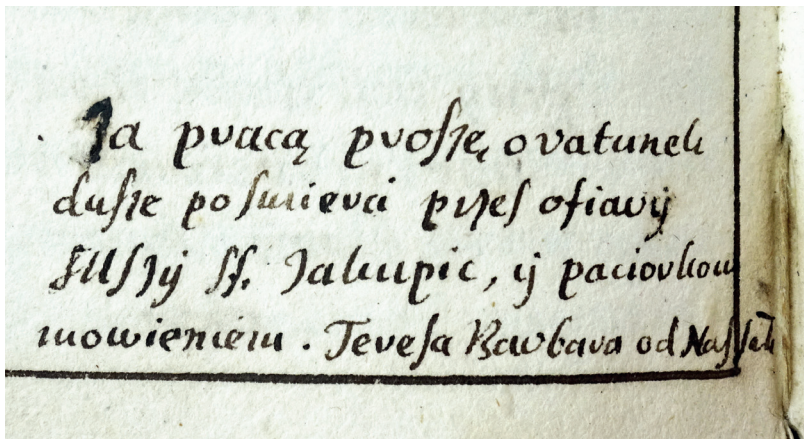 Ja pracą proszę o ratunek
dusze po śmierci przes ofiary
Mszy ss. Jakupic, ÿ paciorkow
mowieniem. Teresa Barbara od